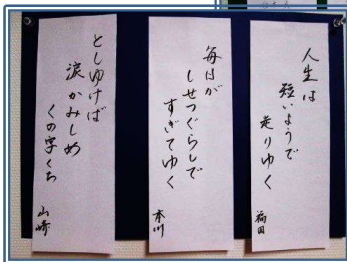 人生は
短いようで
走りゆく
福田
毎日が
しせつぐらしで
すぎてゆく
本川
としゆけば
涙かみしめ
くの字くち
山崎